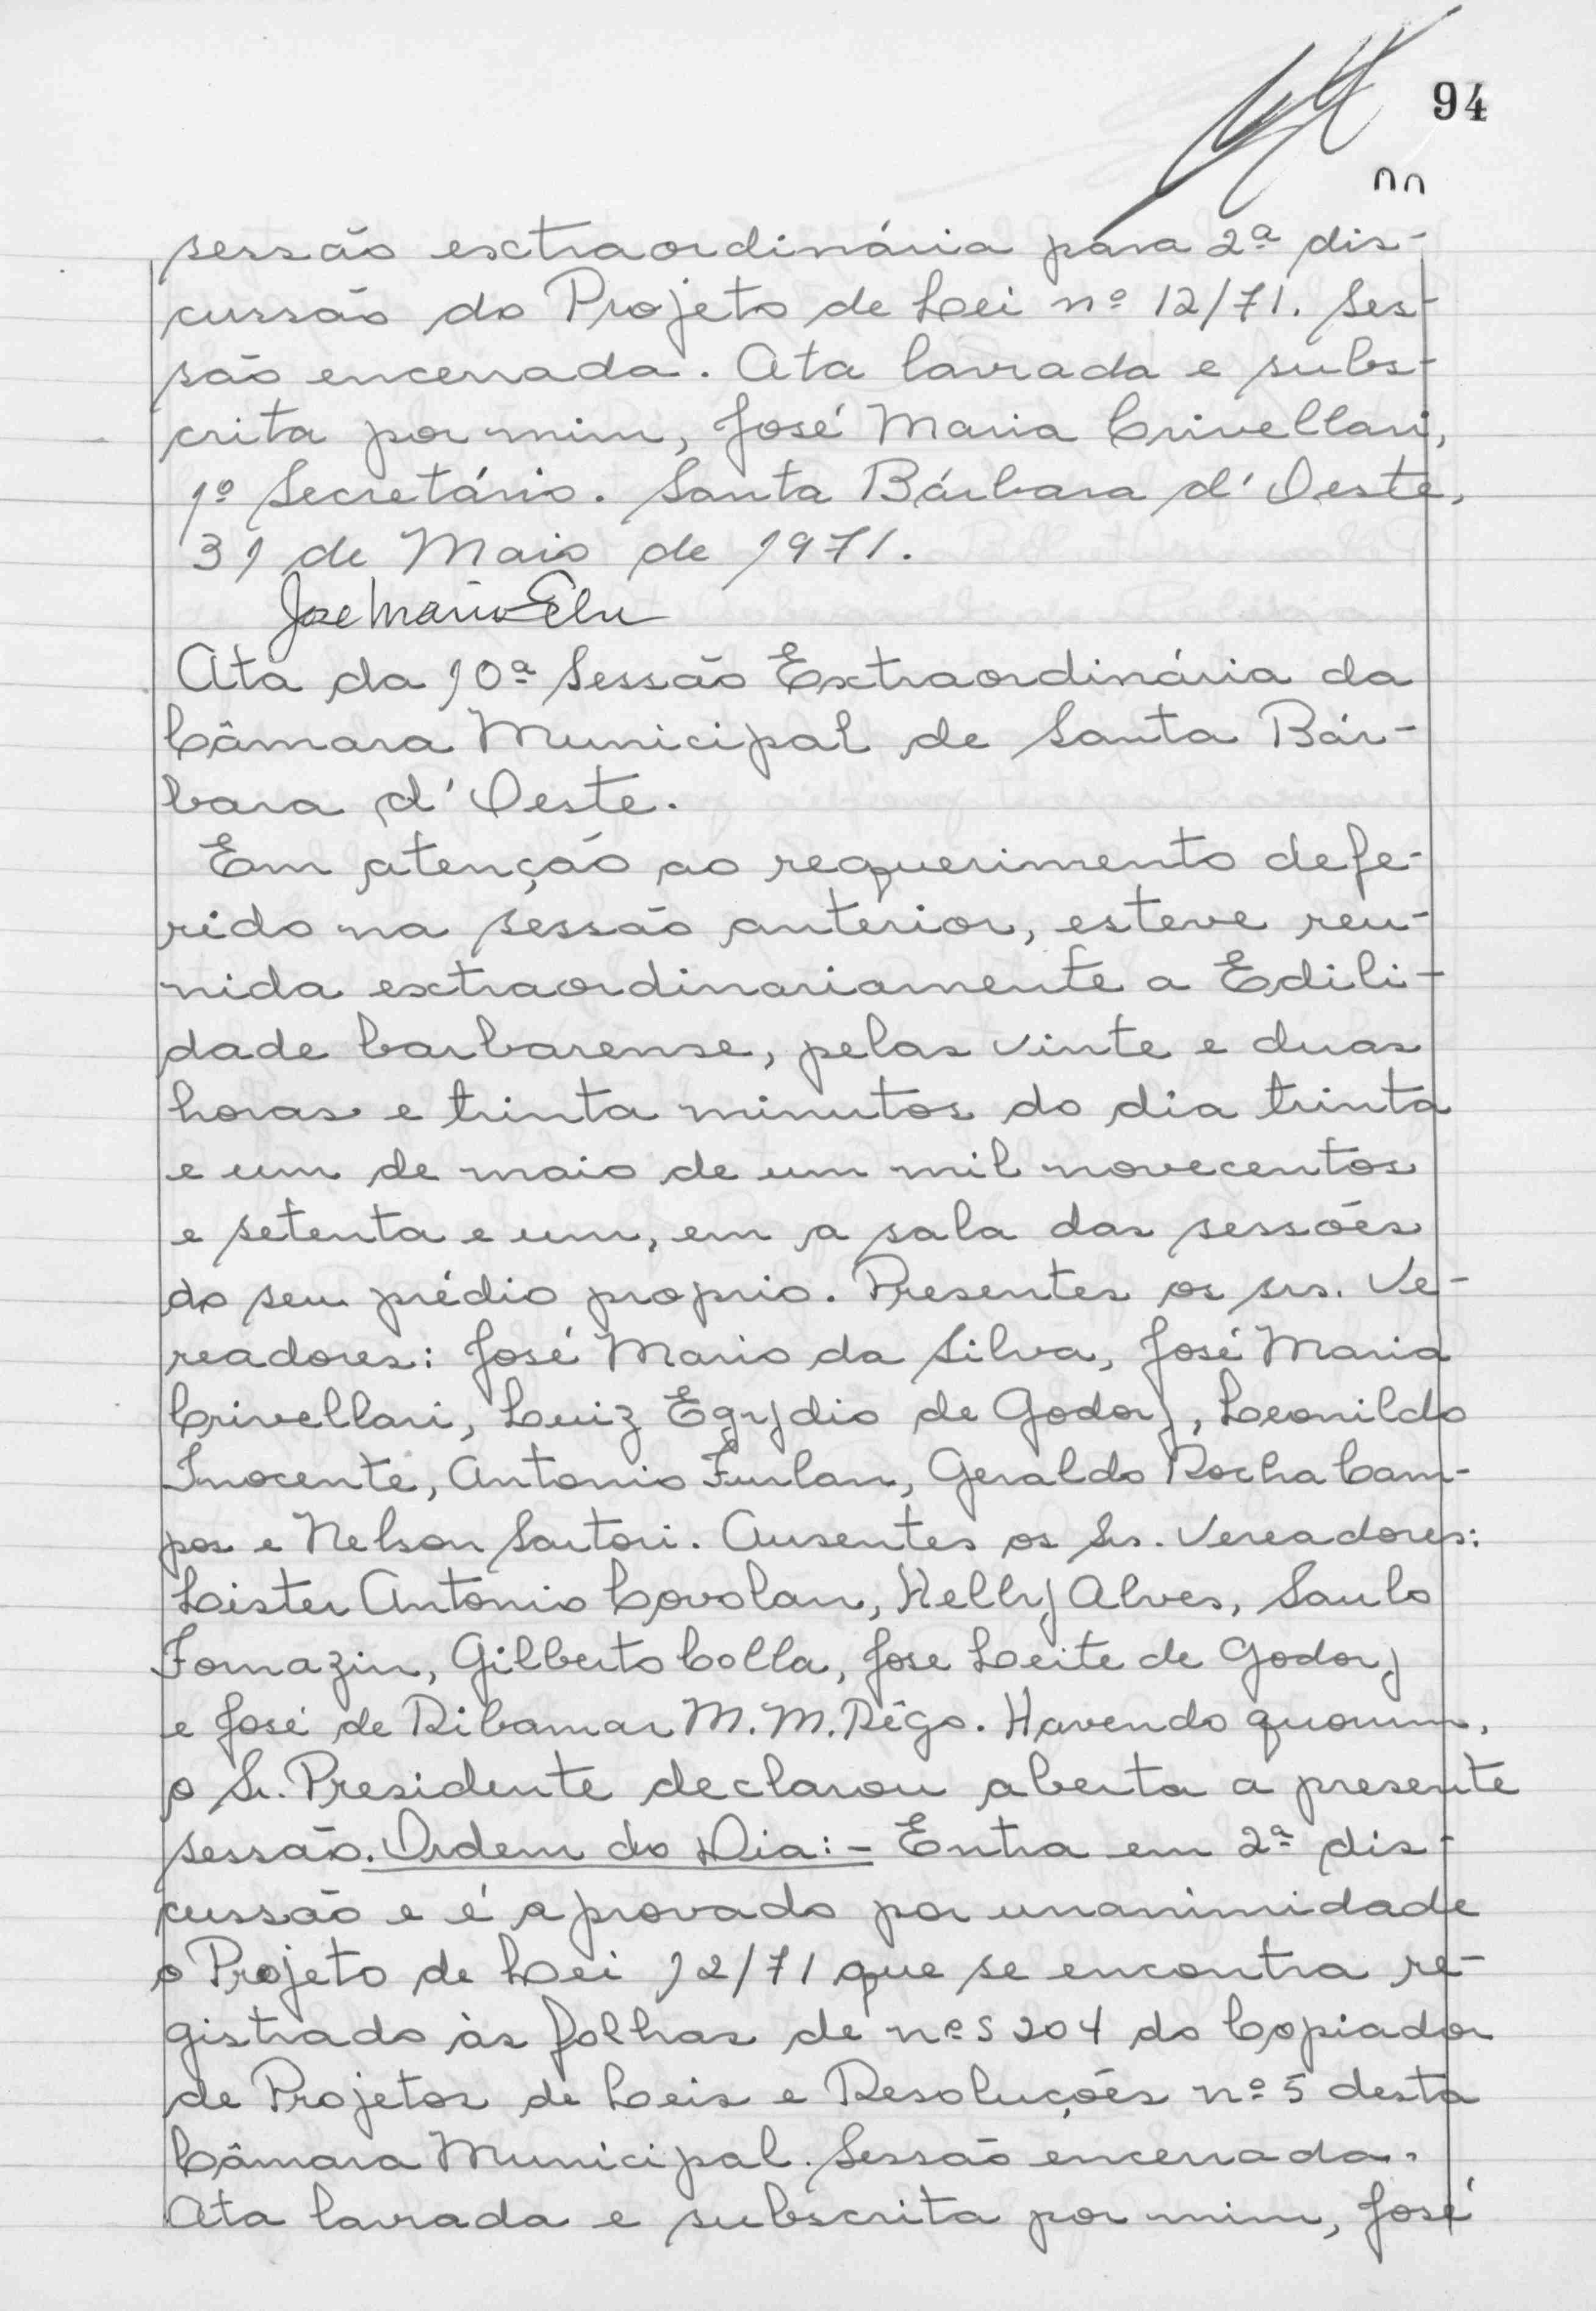 94
sessão extraordinária para 2ª dis-
cussão do Projeto de Lei nº 12/71. Ses-
são encerrada. Ata lavrada e subs-
crita por mim, José Maria Crivellari,
1º Secretário. Santa Bárbara d'Oeste,
31 de Maio de 1971.
Ata da 10ª Sessão Extraordinária da
Câmara Municipal de Santa Bár-
bara d'Oeste.
Em atenção ao requerimento defe-
rido na sessão anterior, esteve reu-
nida extraordinariamente a Edili-
dade barbarense, pelas vinte e duas
horas e trinta minutos do dia trinta
e um de maio de um mil novecentos
e setenta e um, em a sala das sessões
do seu prédio proprio. Presentes os srs. Ve-
readores: José Maria da Silva, José Maria
Crivellari, Luiz Egydio de Godoy, Leonildo
Inocente, Antonio Furlan, Geraldo Rocha Cam-
pos e Nelson Sartori. Ausentes os Srs. Vereadores:
Lister Antonio Covolan, Helly Alves, Saulo
Fornazin, Gilberto Colla, Jose Leite de Godoy
e José de Ribamar M. M. Rêgo. Havendo quorum,
o Sr. Presidente declarou aberta a presente
sessão. Ordem do Dia:- Entra em 2ª dis-
cussão e é aprovado por unanimidade
o Projeto de Lei 12/71 que se encontra re-
gistrado às folhas de nºs 204 do Copiador
de Projetos de Leis e Resoluções nº 5 desta
Câmara Municipal. Sessão encerrada.
Ata lavrada e subscrita por mim, José